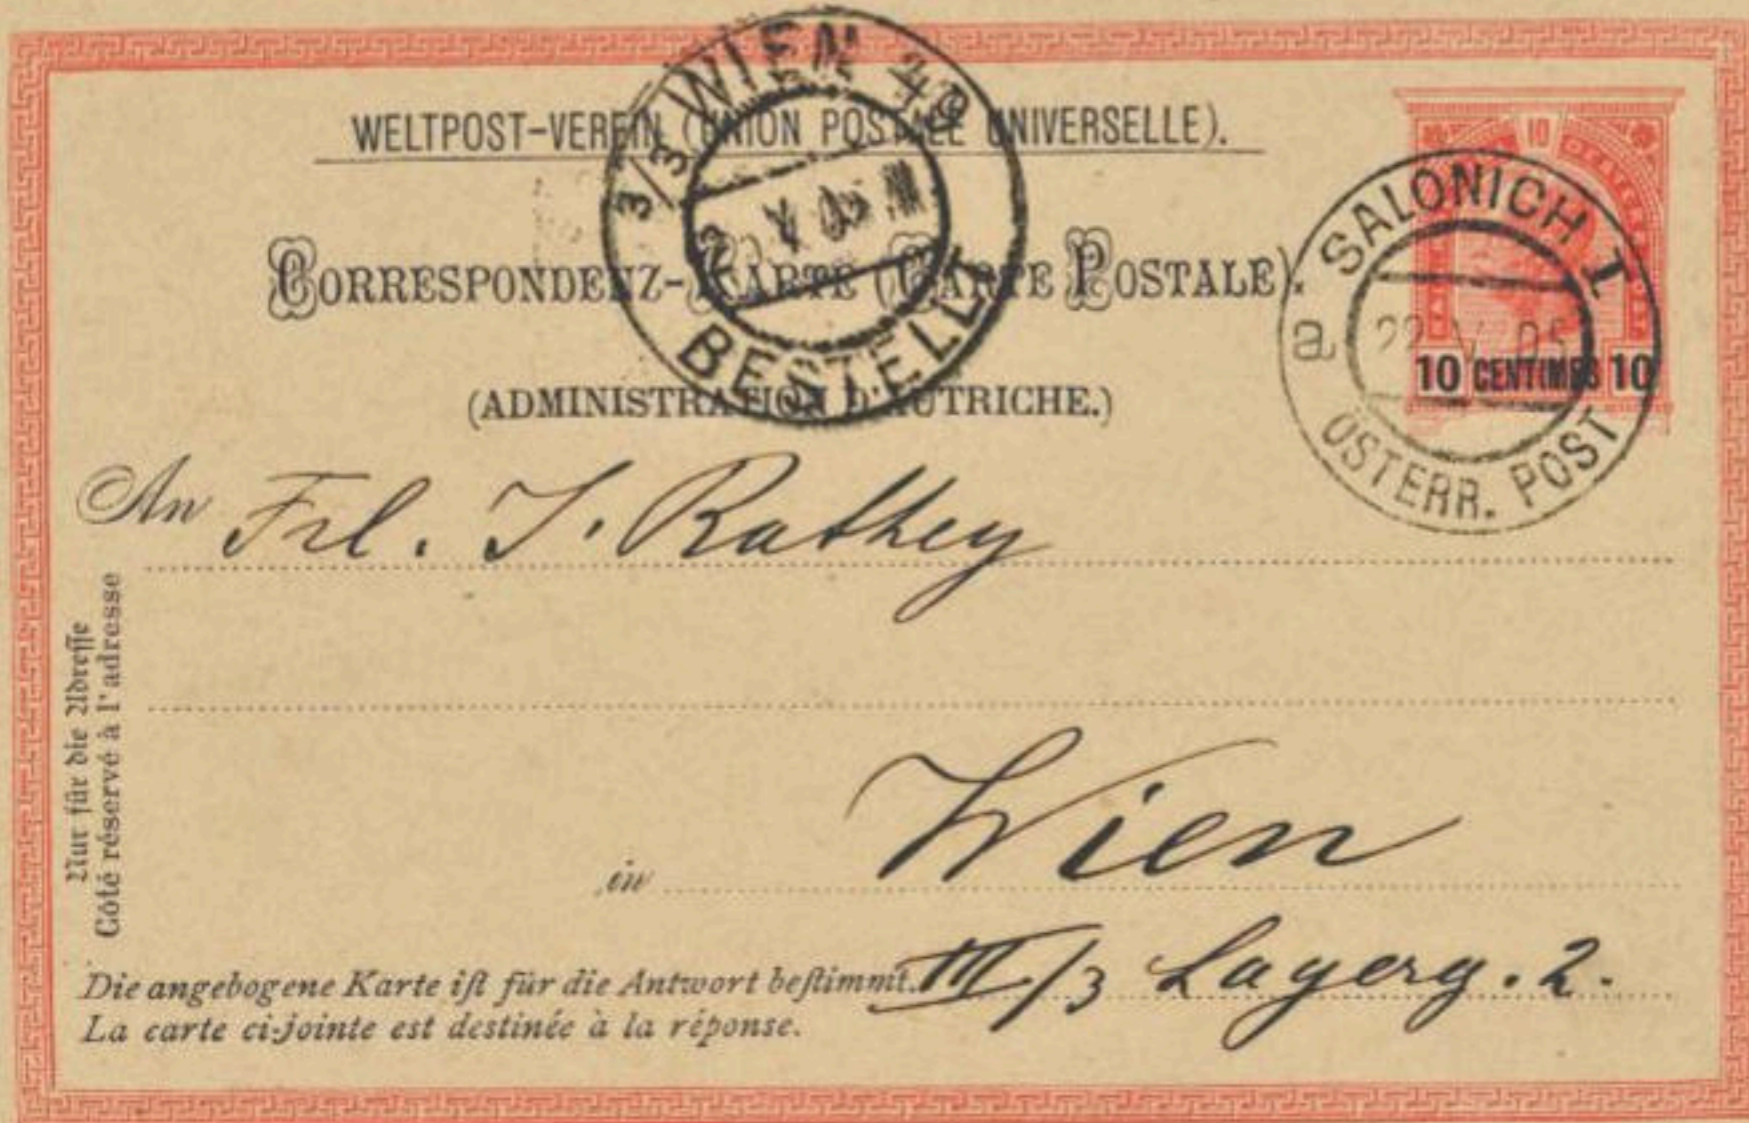 WELTPOST-VEREIN (UNION POSTALE UNIVERSELLE).
CORRESPONDENZ-KARTE (CARTE POSTALE).
(ADMINISTRATION D'AUTRICHE.)
3/3 WIEN 49
BESTELLT
10
SALONICH I
a
22 V 05
10 CENTIMES 10
ÖSTERR. POST
An Frl. J. Rathey
in Wien
III/3 Lagerg. 2.
Nur für die Adresse
Côté réservé à l'adresse
Die angebogene Karte ist für die Antwort bestimmt.
La carte ci-jointe est destinée à la réponse.